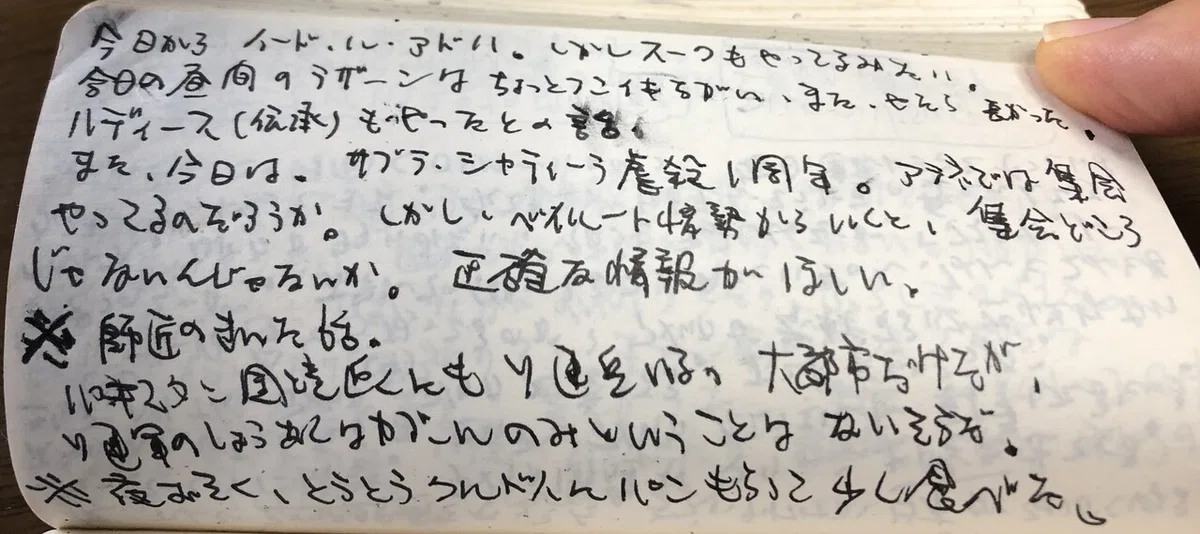 今日から イード・ル・アドハ。しかし スーつもやってるみたい。
今日の昼間のラザーンは ちょっとフンイキちがい、また、やたら 長かった。
ルディース(伝承)もやったとの話。
また、今日は、サブラ・シャティーラ虐殺1周年。アテネでは集会
やってるのだろうか。しかし、ベイルート情勢からいくと、集会どころ
じゃないんじゃないか。正確な情報がほしい。
※ 師匠のきいた話。
パキスタン国境近くにも ソ連兵いる。大都市だけだが、
ソ連軍の は のみということは ないそうだ。
※ 夜おそく、とうとう パンもらって 少し食べた。